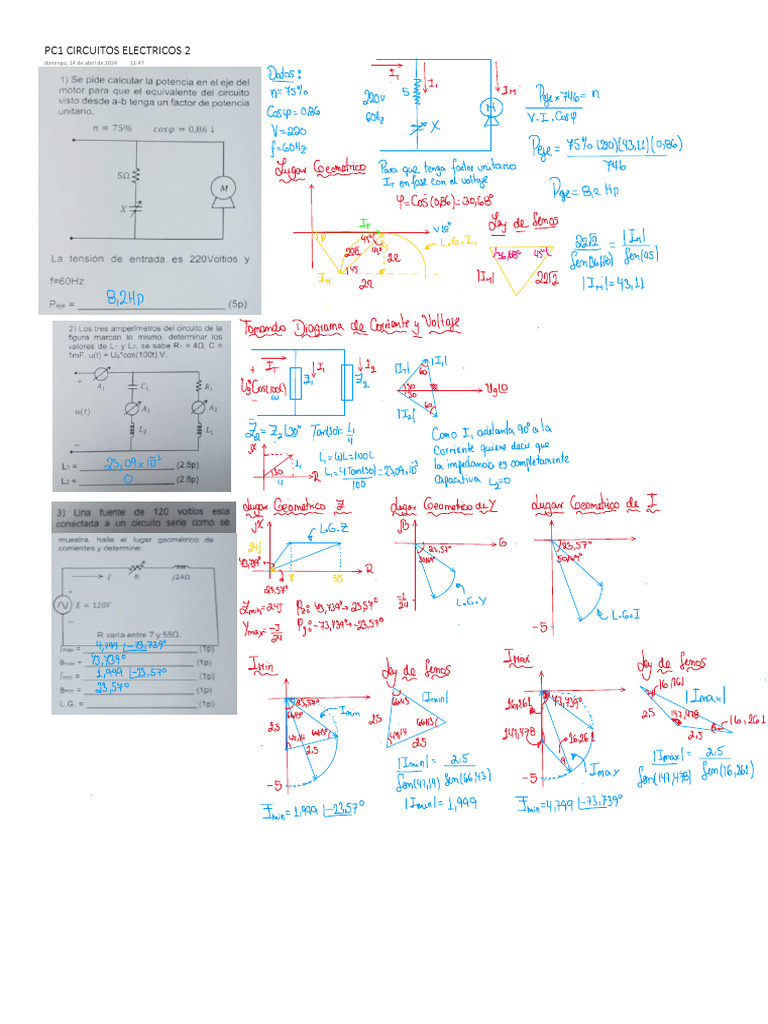 PC1 CIRCUITOS ELECTRICOS 2
domingo, 14 de abril de 2024 11:47
1) Se pide calcular la potencia en el eje del
motor para que el equivalente del circuito
visto desde a-b tenga un factor de potencia
unitario.
n = 75% cosφ = 0,86 ↓
5Ω
X
M
La tensión de entrada es 220Voltios y
f=60Hz
Peje = 8,2Hp (5p)
Datos:
n=75%
Cosφ=0,86
V=220
f=60Hz
IT
I1
IM
220V
60Hz
5
X
M
Peje x 746 = n
V.I.Cosφ
Peje = 75%(220)(43,11)(0,86)
746
Peje = 8,2 Hp
Lugar Geometrico
Para que tenga factor unitario
IT en fase con el voltaje
φ=Cos(0,86)=30,68°
IT
V|0°
L.G.I1
45°
22√2
22
45
22
IM
Ley de Senos
36,68°
45°
|IM|
22√2
22√2 = |IM|
Sen(36,68) Sen(45)
|IM|=43,11
2) Los tres amperímetros del circuito de la
figura marcan lo mismo, determinar los
valores de L1 y L2, se sabe R1 = 4Ω, C =
1mF, u(t) = U0*cos(100t) V.
A1
C1
R1
u(t)
A2
A2
L2
L1
L1 = 23,09x10⁻³ (2.5p)
L2 = 0 (2.5p)
Tomando Diagrama de Corriente y Voltaje
IT
I1
I2
Vg Cos(100t)
ω
Z1
Z2
|IT|
|I1|
60
30
30
60
|I2|
Vg|0
Z2 = Z2|30°
Tan(30)= L1
4
jX
30
4
R
L1 = WL=100L
L1 = 4Tan(30) = 23,09.10⁻³
100
Como I1 adelanta 90° a la
Corriente quiere decir que
la impedancia es completamente
Capacitiva L2=0
3) Una fuente de 120 voltios esta
conectada a un circuito serie como se
muestra. halle el lugar geométrico de
corrientes y determine:
I
R
j24Ω
E = 120V
R varía entre 7 y 55Ω.
Imax = 4,799 |-73,739° (1p)
θmax = 73,739° (1p)
Imin = 1,999 |-23,57° (1p)
θmin = 23,57° (1p)
L.G. = (1p)
Lugar Geometrico Z
jX
L.G.Z
24j
73,739°
7
55
R
23,57°
Zmin=24J
Ymax=-J
24
Pz: 73,739° → 23,57°
Py: -73,739° → -23,57°
Lugar Geometrico de Y
jB
G
23,57°
50,169°
-1
24
L.G.Y
Lugar Geometrico de I
23,57°
50,169°
-5
L.G.I
Imin
23,57°
66,43°
2,5
Imin
47,14
66,43
2.5
-5
Imin=1,999 |-23,57°
Ley de Senos
66,43
|Imin|
2.5
66,43
47,14
2.5
|Imin| = 2.5
Sen(47,14) Sen(66,43)
|Imin| = 1,999
Imax
16,261
73,739°
147,478
16,261
Imax
-5
Imin=4,799 |-73,739°
Ley de Senos
16,261
|Imax|
2,5
147,478
16,261
2.5
|Imax| = 2.5
Sen(147,478) Sen(16,261)